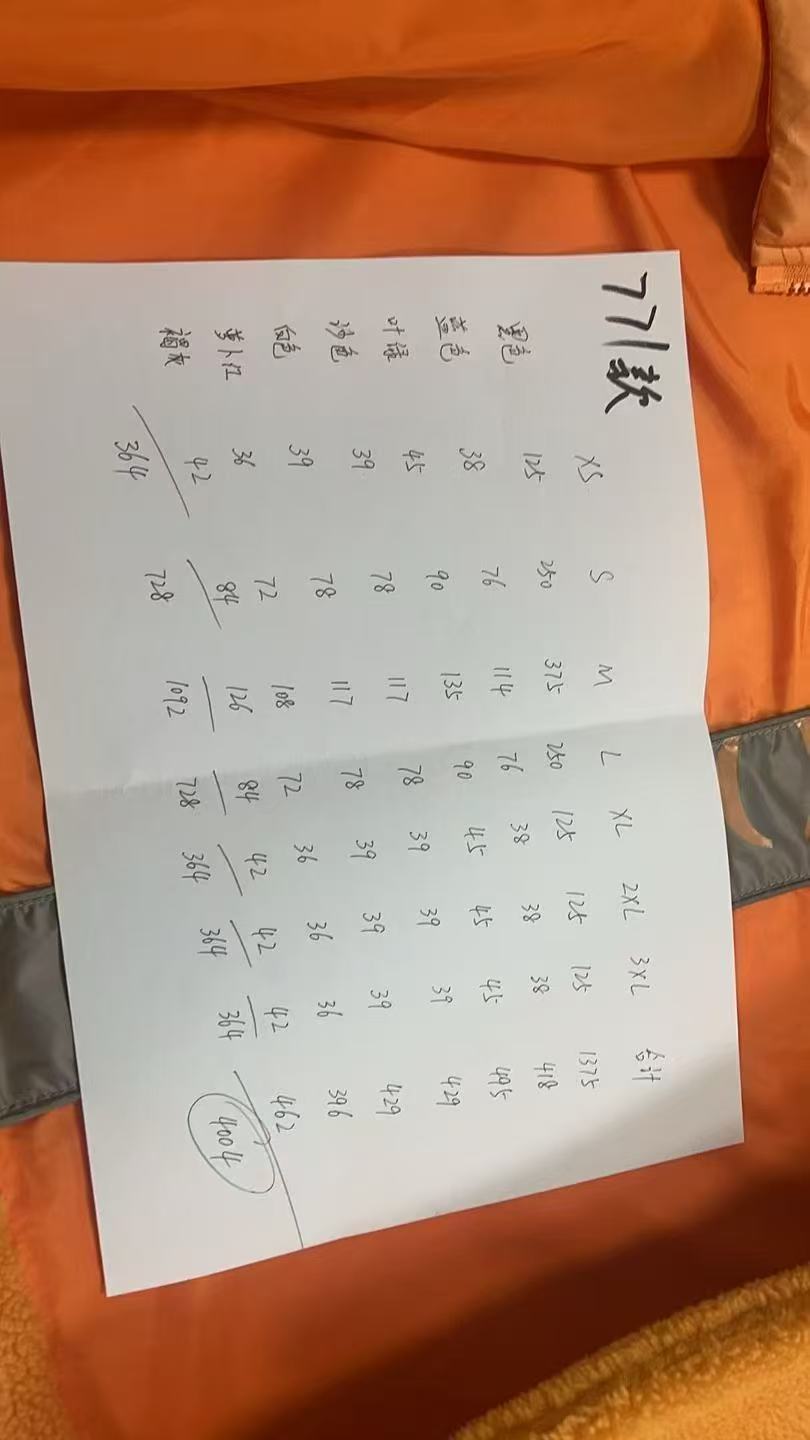 771款
XS S M L XL 2XL 3XL 合计
黑色 125 250 375 250 125 125 125 1375
蓝色 38 76 114 76 38 38 38 418
叶绿 45 90 135 90 45 45 45 495
沙色 39 78 117 78 39 39 39 429
白色 39 78 117 78 39 39 39 429
萝卜红 36 72 108 72 36 36 36 396
42 84 126 84 42 42 42 462
364 728 1092 728 364 364 364 4004